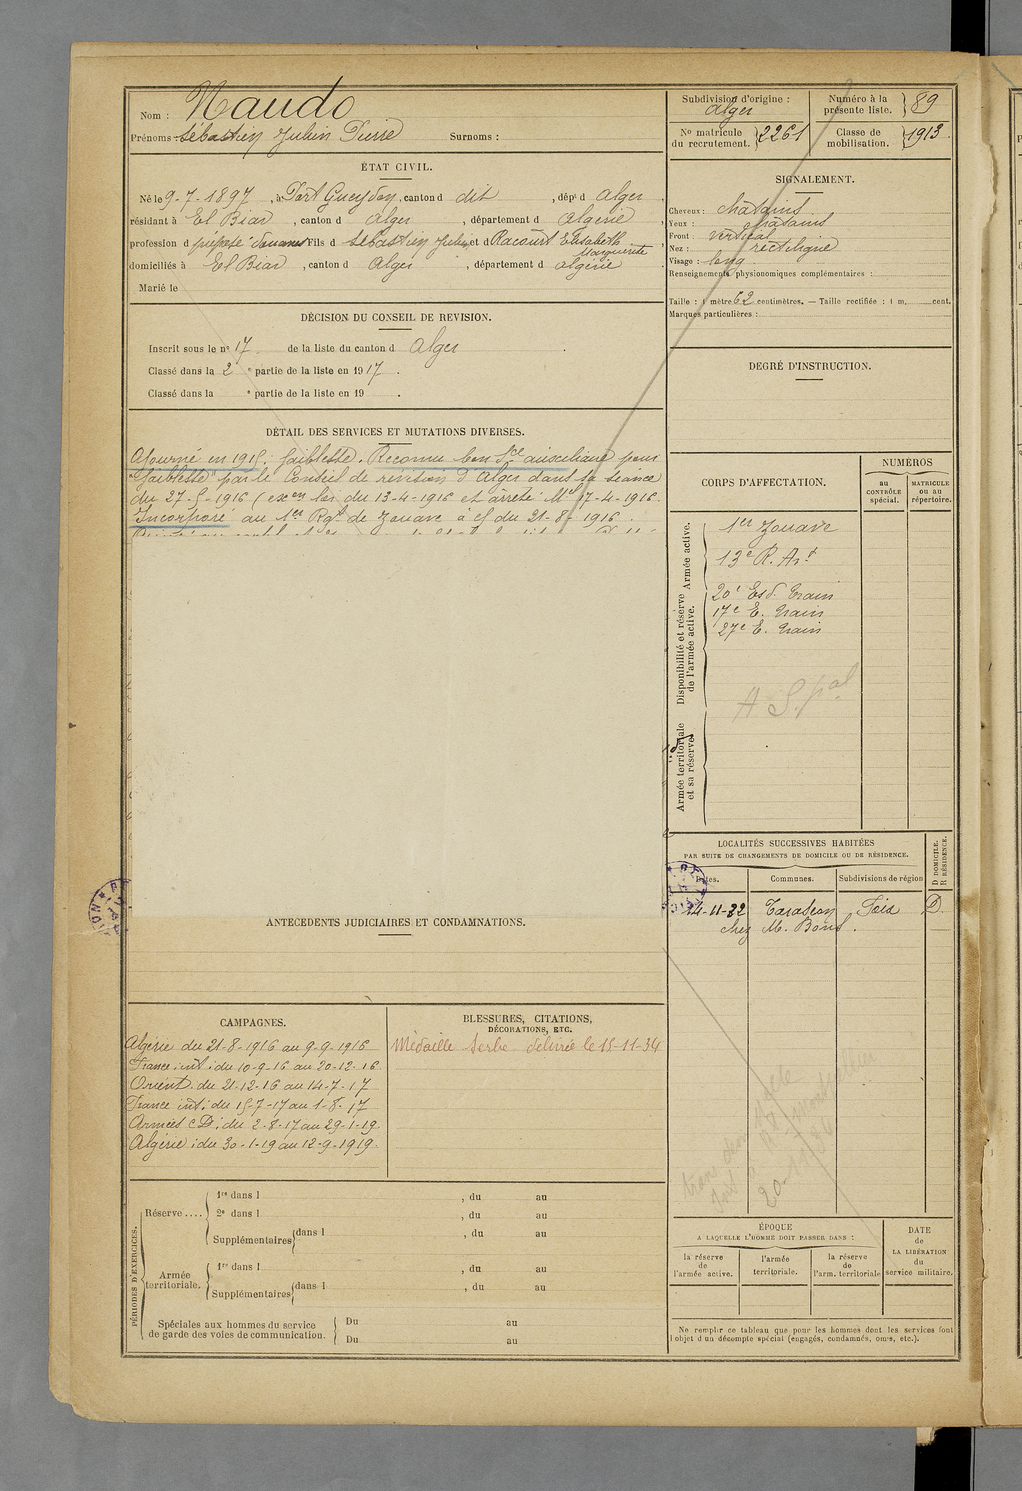 Nom : Naudo
Prénoms : Sébastien Julien Pierre Surnoms :
ÉTAT CIVIL.
Né le 9-7-1897, à Port Gueydon, canton d dit, dépt d Alger,
résidant à El Biar, canton d Alger, département d Algérie,
profession d préposé douanes Fils d Sébastien Julien et d Racourt Elisabeth
Marguerite
domiciliés à El Biar, canton d Alger, département d Algérie
Marié le
DÉCISION DU CONSEIL DE REVISION.
Inscrit sous le n° 17 de la liste du canton d Alger
Classé dans la 2 e partie de la liste en 1917.
Classé dans la e partie de la liste en 19 .
DÉTAIL DES SERVICES ET MUTATIONS DIVERSES.
Ajourné en 1915, faiblesse. Reconnu bon Sce auxiliaire pour
"faiblesse" par le Conseil de révision d'Alger dans sa séance
du 27-5-1916 (exon loi du 13-4-1916 et arrêté Mel 17-4-1916.
Incorporé au 1er Rgt de Zouave à c/ du 21-8-1916.
ANTÉCÉDENTS JUDICIAIRES ET CONDAMNATIONS.
CAMPAGNES.
Algérie du 21-8-1916 au 9-9-1916
France int : du 10-9-16 au 20-12-16
Orient : du 21-12-16 au 14-7-17
France int : du 15-7-17 au 1-8-17
Armées c D : du 2-8-17 au 29-1-19
Algérie : du 30-1-19 au 12-9-1919
BLESSURES, CITATIONS,
DÉCORATIONS, ETC.
Médaille Serbe délivrée le 15-11-34
PÉRIODES D'EXERCICES.
Réserve ....
1re dans l , du au
2e dans l , du au
Supplémentaires dans l , du au
Armée
territoriale.
1re dans l , du au
Supplémentaires dans l , du au
Spéciales aux hommes du service
de garde des voies de communication.
Du au
Du au
Subdivision d'origine :
Alger
Numéro à la
présente liste. 89
N° matricule
du recrutement. 2261
Classe de
mobilisation. 1913
SIGNALEMENT.
Cheveux : châtains
Yeux : châtains
Front : vertical
Nez : rectiligne
Visage : long
Renseignements physionomiques complémentaires :
Taille : 1 mètre 62 centimètres. — Taille rectifiée : 1 m. cent.
Marques particulières :
DEGRÉ D'INSTRUCTION.
CORPS D'AFFECTATION.
NUMÉROS
au
CONTRÔLE
spécial.
MATRICULE
ou au
répertoire.
Armée active.
1er Zouave
13e R. Art
Disponibilité et réserve
de l'armée active.
20e Esc. Train
17e E. Train
27e E. Train
A S.pal
Armée territoriale
et sa réserve.
LOCALITÉS SUCCESSIVES HABITÉES
PAR SUITE DE CHANGEMENTS DE DOMICILE OU DE RÉSIDENCE.
Dates.
Communes.
Subdivisions de région
D DOMICILE.
R RÉSIDENCE.
14-11-32 Tarascon Foix D.
chez M. Bous.
20-11-34
ÉPOQUE
A LAQUELLE L'HOMME DOIT PASSER DANS :
la réserve
de
l'armée active.
l'armée
territoriale.
la réserve
de
l'arm. territoriale
DATE
de
LA LIBÉRATION
du
service militaire.
Ne remplir ce tableau que pour les hommes dont les services font
l'objet d'un décompte spécial (engagés, condamnés, omis, etc.).